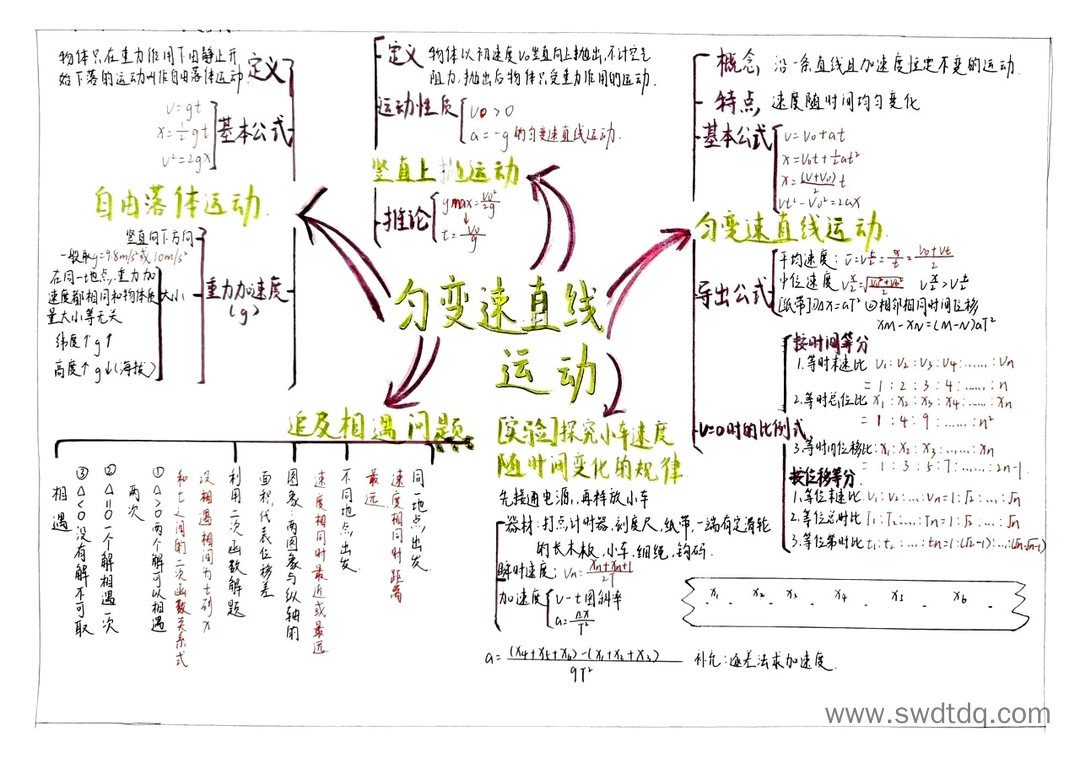 匀变速直线
运动
自由落体运动
定义
物体只在重力作用下由静止开
始下落的运动叫作自由落体运动
基本公式
v=gt
x=½gt
v²=2gx
重力加速度
(g)
竖直向下方向
一般取g=9.8m/s²或10m/s²
在同一地点,重力加
速度都相同和物体质
量大小等无关
大小
纬度↑g↑
高度↑g↓(海拔)
竖直上抛运动
定义
物体以初速度v0竖直向上抛出,不计空气
阻力,抛出后物体只受重力作用的运动.
运动性质
v0>0
a=-g的匀变速直线运动.
推论
ymax=v0²/2g
t=v0/g
匀变速直线运动
概念
沿一条直线且加速度恒定不变的运动.
特点
速度随时间均匀变化
基本公式
v=v0+at
x=v0t+½at²
x=(v+v0)/2 t
vt²-v0²=2ax
导出公式
平均速度: v̄=v t/2=x/t=(v0+vt)/2
中位速度 v x/2=√(v0²+vt²)/2 v x/2>v t/2
[纸带]①△x=aT² ②相邻相同时间位移
xM-xN=(M-N)aT²
v=0时的比例式
按时间等分
1.等时末速比 v1:v2:v3:v4:……:vn
=1:2:3:4:……:n
2.等时总位比 x1:x2:x3:x4:……:xn
=1:4:9:……:n²
3.等时间位移比:x1:x2:x3:……:xn
=1:3:5:7:……:2n-1.
按位移等分
1.等位末速比 v1:v2:…:vn=1:√2:…:√n
2.等位总时比 T1:T2:…:Tn=1:√2:…:√n
3.等位第时比 t1:t2:…:tn=1:(√2-1):…:(√n-√n-1)
追及相遇问题
同一地点,出发
速度相同时距离
最远
不同地点,出发
速度相同时最近或最远
图象:两图象与纵轴的
面积,代表位移差
利用二次函数解题
设相遇相间为t列x
和t之间的二次函数关系式
①△>0两个解可以相遇
两次
②△=0一个解相遇一次
③△<0没有解不可取
相遇
[实验]探究小车速度
随时间变化的规律
先接通电源,再释放小车
器材:打点计时器,刻度尺,纸带,一端有定滑轮
的长木板,小车,细绳,钩码.
瞬时速度: vn=(xn+xn+1)/2T
加速度
v-t图斜率
a=△x/T²
a=((x4+x5+x6)-(x1+x2+x3))/9T²
补充:逐差法求加速度.
x1 x2 x3 x4 x5 x6
www.swdtdq.com